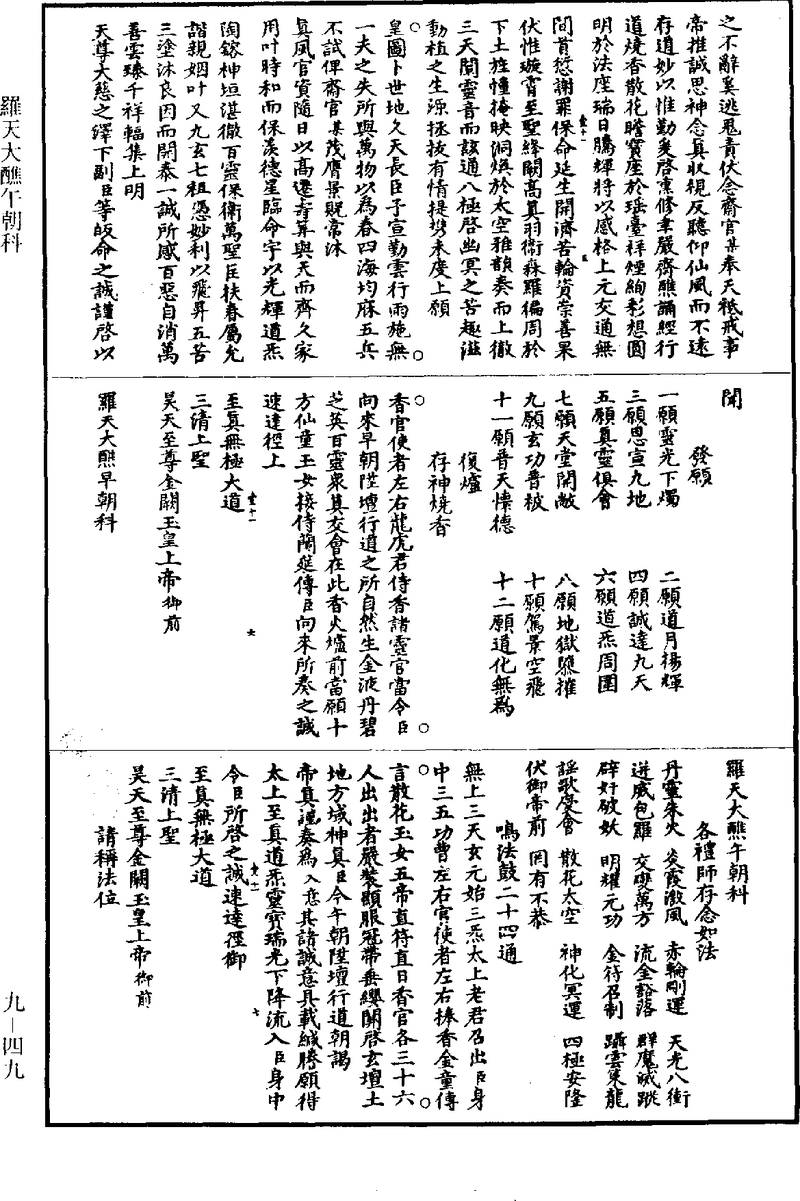 之不辭奚逃鬼責伏念齋官某奉天祗戒事
帝推誠思神念真收視反聽仰仙風而不遠
存道妙以惟勤爰啓熏修聿嚴齋醮誦經行
道燒香散花瞻寳座於瑶臺祥煙絢彩想圓
明於法座瑞日騰輝将以感格上元交通無
間首愆謝罪保命延生開濟苦輪資崇善果
伏惟璇霄至聖絳闕高真羽衛森羅徧周於
下土旌幢掩映洞煥於太空雅韻奏而上徹
三天闡靈音而該通八極啓幽冥之苦趣滋
動植之生源拯拔有情提携未度上願
皇圖卜世地久天長臣子宣勤雲行雨施無
一夫之失所與萬物以為春四海均庥五兵
不試俾齋官某茂膺景貺常沐
真風官資隨日以高遷壽筭與天而齊久家
用叶時和而保溪德星臨命宇以光輝道炁
陶鎔神垣湛徹百靈保衛萬聖臣扶眷屬允
諧親姻叶乂九玄七祖憑妙利以飛昇五苦
三塗沐良因而開泰一誠所感百惡自消萬
善雲臻千祥輻集上明
天尊大慈之澤下副臣等皈命之誠謹啓以
聞
發願
一願靈光下燭 二願道月揚輝
三願恩宣九地 四願誠達九天
五願真靈俱會 六願道炁周圍
七願天堂開敞 八願地獄隳摧
九願玄功普被 十願駕景空飛
十一願普天懷德 十二願道化無為
復爐
存神燒香
香官使者左右龍虎君侍香諸靈官當令臣
向來早朝陞壇行道之所自然生金液丹碧
芝英百靈衆真交會在此香火爐前當願十
方仙童玉女接侍蘭筵傳臣向來所奏之誠
速達徑上
至真無極大道
三清上聖
昊天至尊金闕玉皇上帝御前
羅天大醮早朝科
羅天大醮午朝科
各禮師存念如法
丹靈朱火 炎霞激風 赤輪剛運 天光八衝
迸威包羅 交磔萬方 流金豁落 群魔滅蹤
辟奸破妖 明耀元功 金符召制 躡雲策龍
謡歌慶會 散花太空 神化冥運 四極安隆
伏御帝前 罔有不恭
鳴法鼓二十四通
無上三天玄元始三炁太上老君召出臣身
中三五功曹左右官使者左右捧香金童傳
言散花玉女五帝直符直日香官各三十六
人出出者嚴裝顯服冠帶垂纓關啓玄壇土
地方域神真臣今午朝陞壇行道朝謁
帝真誦奏為入意其諸誠意具載緘勝願得
太上至真道炁靈寳瑞光下降流入臣身中
令臣所啓之誠速達徑御
至真無極大道
三清上聖
昊天至尊金闕玉皇上帝御前
請稱法位
羅天大醮午朝科
九—四九